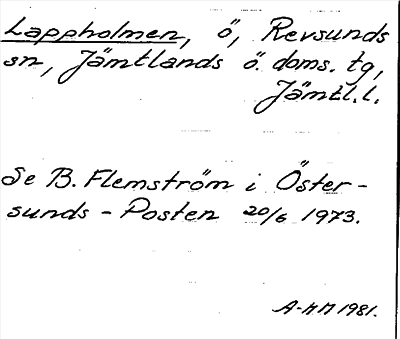 Lappholmen, ö, Revsunds
sn, Jämtlands ö. doms. tg,
Jämtl. l.
Se B. Flemström i Öster-
sunds-Posten 20/6 1973.
A-MM 1981.